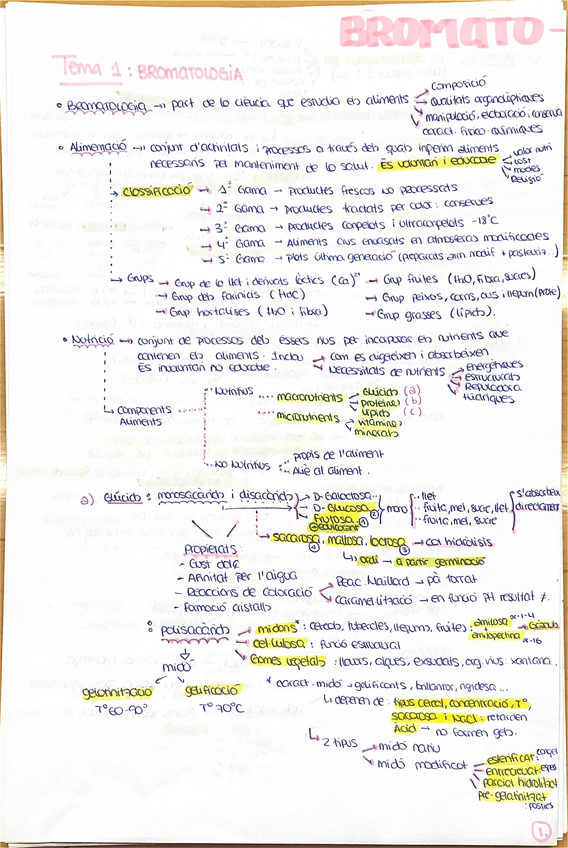 BROMATO-
Tema 1: BROMATOLOGIA
• Bromatologia → part de la ciència que estudia els aliments → composició
→ qualitats organolèptiques
→ manipulació, elaboració i conserva
→ caract. físico-químiques
• Alimentació → conjunt d'activitats i processos a través dels quals ingerim aliments
necessaris pel manteniment de la salut. És voluntari i educable → valor nutri
→ cost
→ modes
→ Religió
→ Classificació → 1ª Gama → productes frescos no processats
→ 2ª Gama → productes tractats per calor: conserves
→ 3ª Gama → productes congelats i ultracongelats -18ºC
→ 4ª Gama → Aliments crus envasats en atmosferes modificades
→ 5ª Gama → Plats última generació (preparats atm modif + pasteuria..)
→ Grups → Grup de la llet i derivats làctics (Ca)²⁺ → Grup fruites (H2O, fibra, sucres)
→ Grup dels farinacis (HdC) → Grup peixos, carns, ous i llegum (Prote)
→ Grup hortalises (H2O i fibra) → Grup grasses (lípids).
• Nutrició → conjunt de processos dels éssers vius per incorporar els nutrients que
contenen els aliments. Inclou → com es digereixen i absorbeixen
És involuntari no educable. → Necessitats de nutrients → energètiques
→ estructurals
→ Reguladora
→ hídriques
→ Components Aliments
Nutritius
macronutrients → Glúcids (a)
→ proteïnes (b)
→ lípids (c)
micronutrients → vitamines
→ minerals
No Nutritius
propis de l'aliment
Aliè al aliment.
a) Glúcids: monosacàrids i disacàrids → D-Galactosa..
→ D-Glucosa
→ fructosa
mono
·· llet
·· fruita, mel, sucre, llet
·· fruita, mel, sucre
s'absorbeix directament
+ edulcorant
sacarosa, maltosa, lactosa → cal hidròlisis
↳ ordi → a partir germinació
Propietats
- Gust dolç
- Afinitat per l'aigua
- Reaccions de coloració → Reac. Maillard → pà torrat
→ Caramelització → en funció pH resultat ≠.
- Formació cristalls
polisacàrids → midons*: cereals, tubercles, llegums, fruites: amilosa α-1-4
amilopectina α-1,6
→ cel·lulosa: funció estructural
→ Gomes vegetals: llavors, algues, exsudats, org. vius: xantana.
midó
gelatinització
Tº 60-90º
gelificació
Tº 70ºC
* caract. midó → gelificants, brillantor, rigidesa...
↳ depenen de: tipus cereal, concentració, Tº,
sacarosa i NaCl: retarden
Àcid → no formen gels.
↳ 2 tipus → midó natiu
→ midó modificat → esterificat: congel
→ entrecreuat: espes
→ parcial hidrolitzat
→ pre-gelatinitzat: postres
1.